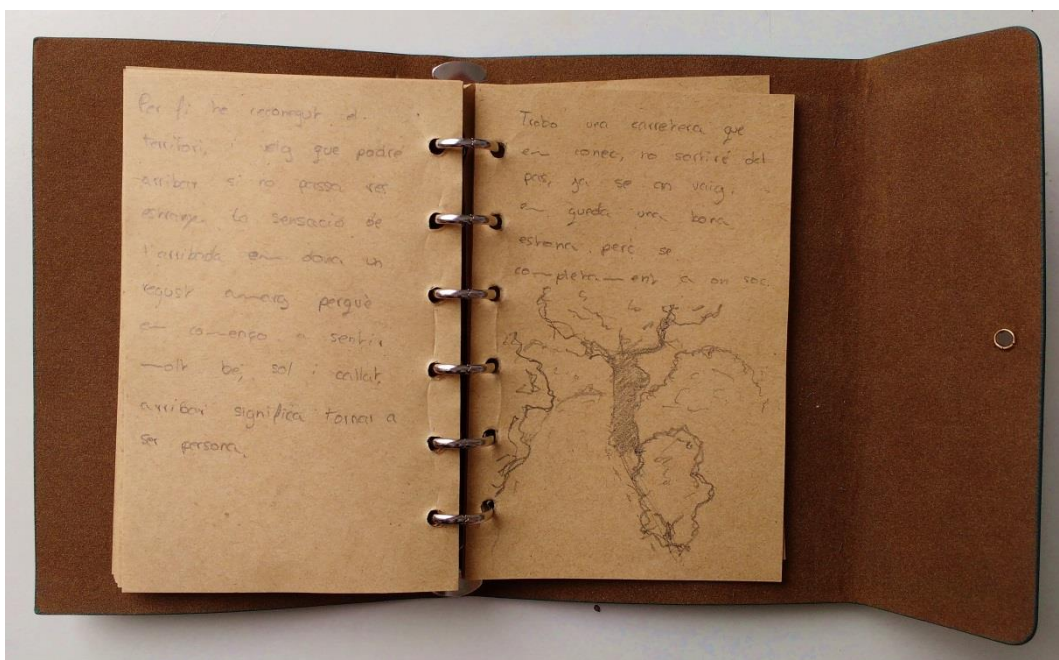 Per fi he reconegut el
territori, i veig que podré
arribar si no passa res
estrany. La sensació de
l'arribada em dona un
regust amarg perquè
em començo a sentir
molt bé, sol i callat,
arribar significa tornar a
ser persona.
Trobo una carretera que
em conec, no sortiré del
país, ja se on vaig.
em queda una bona
estona però se
completament a on soc.